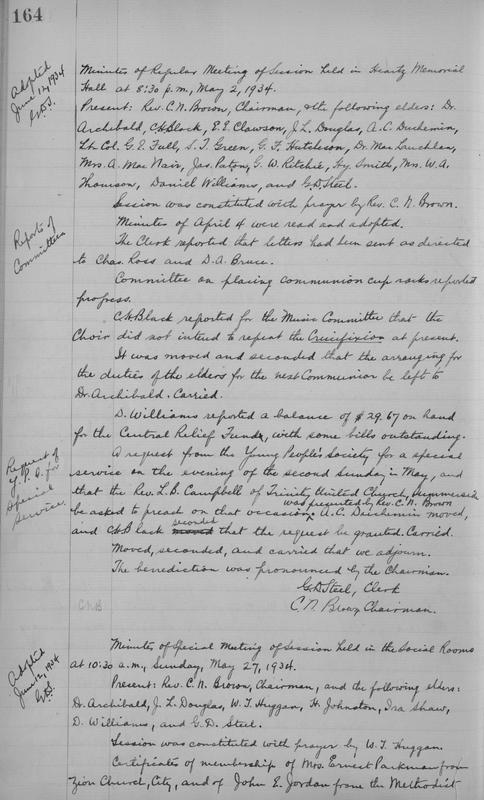 164
Adopted
June 12, 1934
G.D.S.
Minutes of Regular Meeting of Session held in Heartz Memorial
Hall at 8:30 p.m., May 2, 1934.
Present: Rev. C.N. Brown, Chairman, & the following elders: Dr.
Archibald, C.H. Black, E.E. Clawson, J.L. Douglas, A.C. Duchemin,
Lt. Col. G.E. Full, S.T. Green, G.F. Hutcheson, Dr. MacLauchlan,
Mrs. A. MacNair, Jas. Paton, G.W. Ritchie, Hy. Smith, Mrs. W.A.
Thomson, Daniel Williams, and G.D. Steel.
Session was constituted with prayer by Rev. C.N. Brown.
Minutes of April 4 were read and adopted.
Reports of
Committees
The Clerk reported that letters had been sent as directed
to Chas. Ross and D.A. Bruce.
Committee on placing communion cup racks reported
progress.
C.H. Black reported for the Music Committee that the
Choir did not intend to repeat the Crucifixion at present.
It was moved and seconded that the arranging for
the duties of the elders for the next Communion be left to
Dr. Archibald. Carried.
D. Williams reported a balance of $29.67 on hand
for the Central Relief Fund, with some bills outstanding.
Request of
Y.P.S. for
Special
Service.
A request from the Young People's Society for a special
service on the evening of the second Sunday in May, and
that the Rev. L.B. Campbell of Trinity United Church, Summerside
was presented by Rev. C.N. Brown
be asked to preach on that occasion. A.C. Duchemin moved,
seconded
and C.H. Black that the request be granted. Carried.
Moved, seconded, and carried that we adjourn.
The benediction was pronounced by the Chairman.
G.D. Steel, Clerk
C.N.B.
C.N. Brown Chairman.
Adopted
June 12, 1934
G.D.S.
Minutes of Special Meeting of Session held in the Social Rooms
at 10:30 a.m., Sunday, May 27, 1934.
Present: Rev. C.N. Brown, Chairman, and the following elders:
Dr. Archibald, J.L. Douglas, W.T. Huggan, H. Johnston, Ira Shaw,
D. Williams, and G.D. Steel.
Session was constituted with prayer by W.T. Huggan.
Certificates of membership of Mrs. Ernest Parkman from
Zion Church, City, and of John E. Jordan from the Methodist